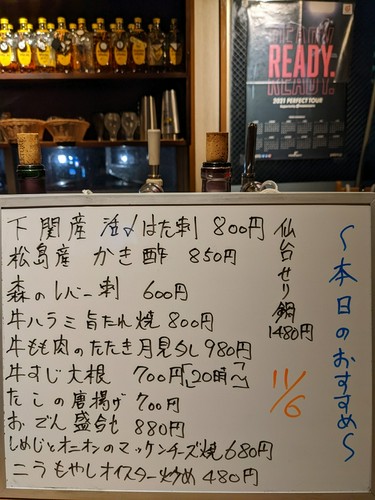 READY.
READY.
READY.
2021 PERFECT TOUR
〜本日のおすすめ〜
11/6
下関産 活〆はた刺 800円
松島産 かき酢 850円
森のレバー刺 600円
牛ハラミ旨たれ焼 800円
牛もも肉のたたき月見少し 980円
牛すじ大根 700円「20時〜」
たこの唐揚げ 700円
おでん盛合せ 880円
しめじとオニオンのマッケンチーズ焼 680円
ニラもやしオイスター炒め 480円
仙台せり鍋
1480円